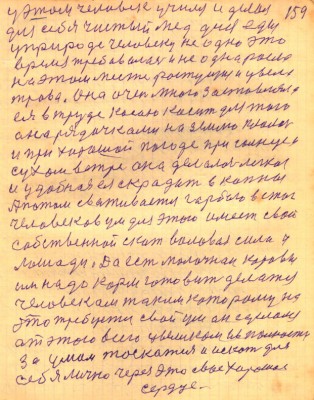 у этом человек учился и делал 159
для себя чистый мед для еды
у природе человеку не одно это
время требовалась и не одна росла
на этом месте растущая и цвела
трава. Она очен много заставляла
ея в труде косою косит для того
она рядочками на землю
и при хорошой погоде при солнце
сухом ветре она делалася легкой
и удобна ея складат в копны
А потом свативается гарбою в стог
человеков ум для этого имеет свой
собственной скот воловая сила и
лошади, Да ест молочная корова
им надо корм готовит делался
человекам таким которому на
это требуется свой ум он сделался
от этого всего великом и в полности
за умом тоскатся и искат для
себя лично через это свое хорошая
сердце.-